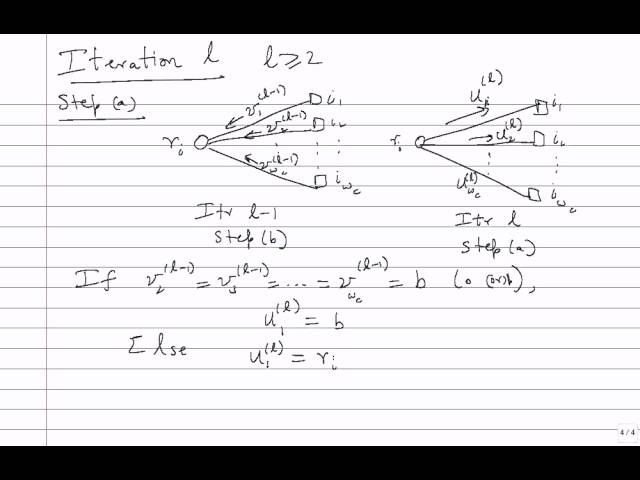 Iteration l   l ≥ 2
Step (a)
v₁^(l-1)   i₁
v₂^(l-1)   i₂
r_i
v_{ω_c}^(l-1)   i_{ω_c}
Itr l-1
Step (b)
u₁^(l)   i₁
u₂^(l)   i₂
r_i
u_{ω_c}^(l)   i_{ω_c}
Itr l
Step (a)
If v₂^(l-1) = v₃^(l-1) = ... = v_{ω_c}^(l-1) = b (0 (or) 1),
u₁^(l) = b
Else   u₁^(l) = r_i
4 / 4